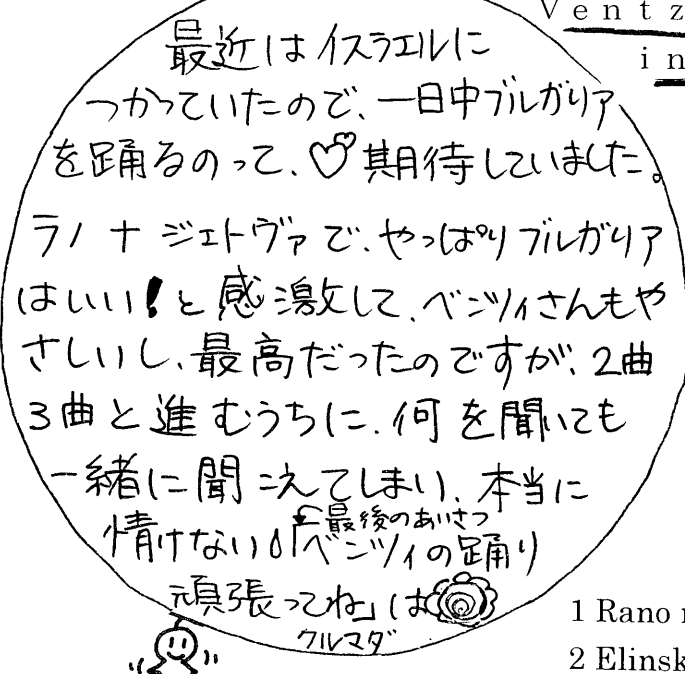 Ventz
in
最近はイスラエルに
つかっていたので、一日中ブルガリア
を踊るのって、♡期待していました。
ラノナジェトヴァで、やっぱりブルガリア
はいい!と感激して、ベンツィさんもや
さしいし、最高だったのですが、2曲
3曲と進むうちに、何を聞いても
一緒に聞こえてしまい、本当に
情けない
←最後のあいさつ
「ベンツィの踊り
頑張ってね」は
クルマダ
1 Rano
2 Elinsk